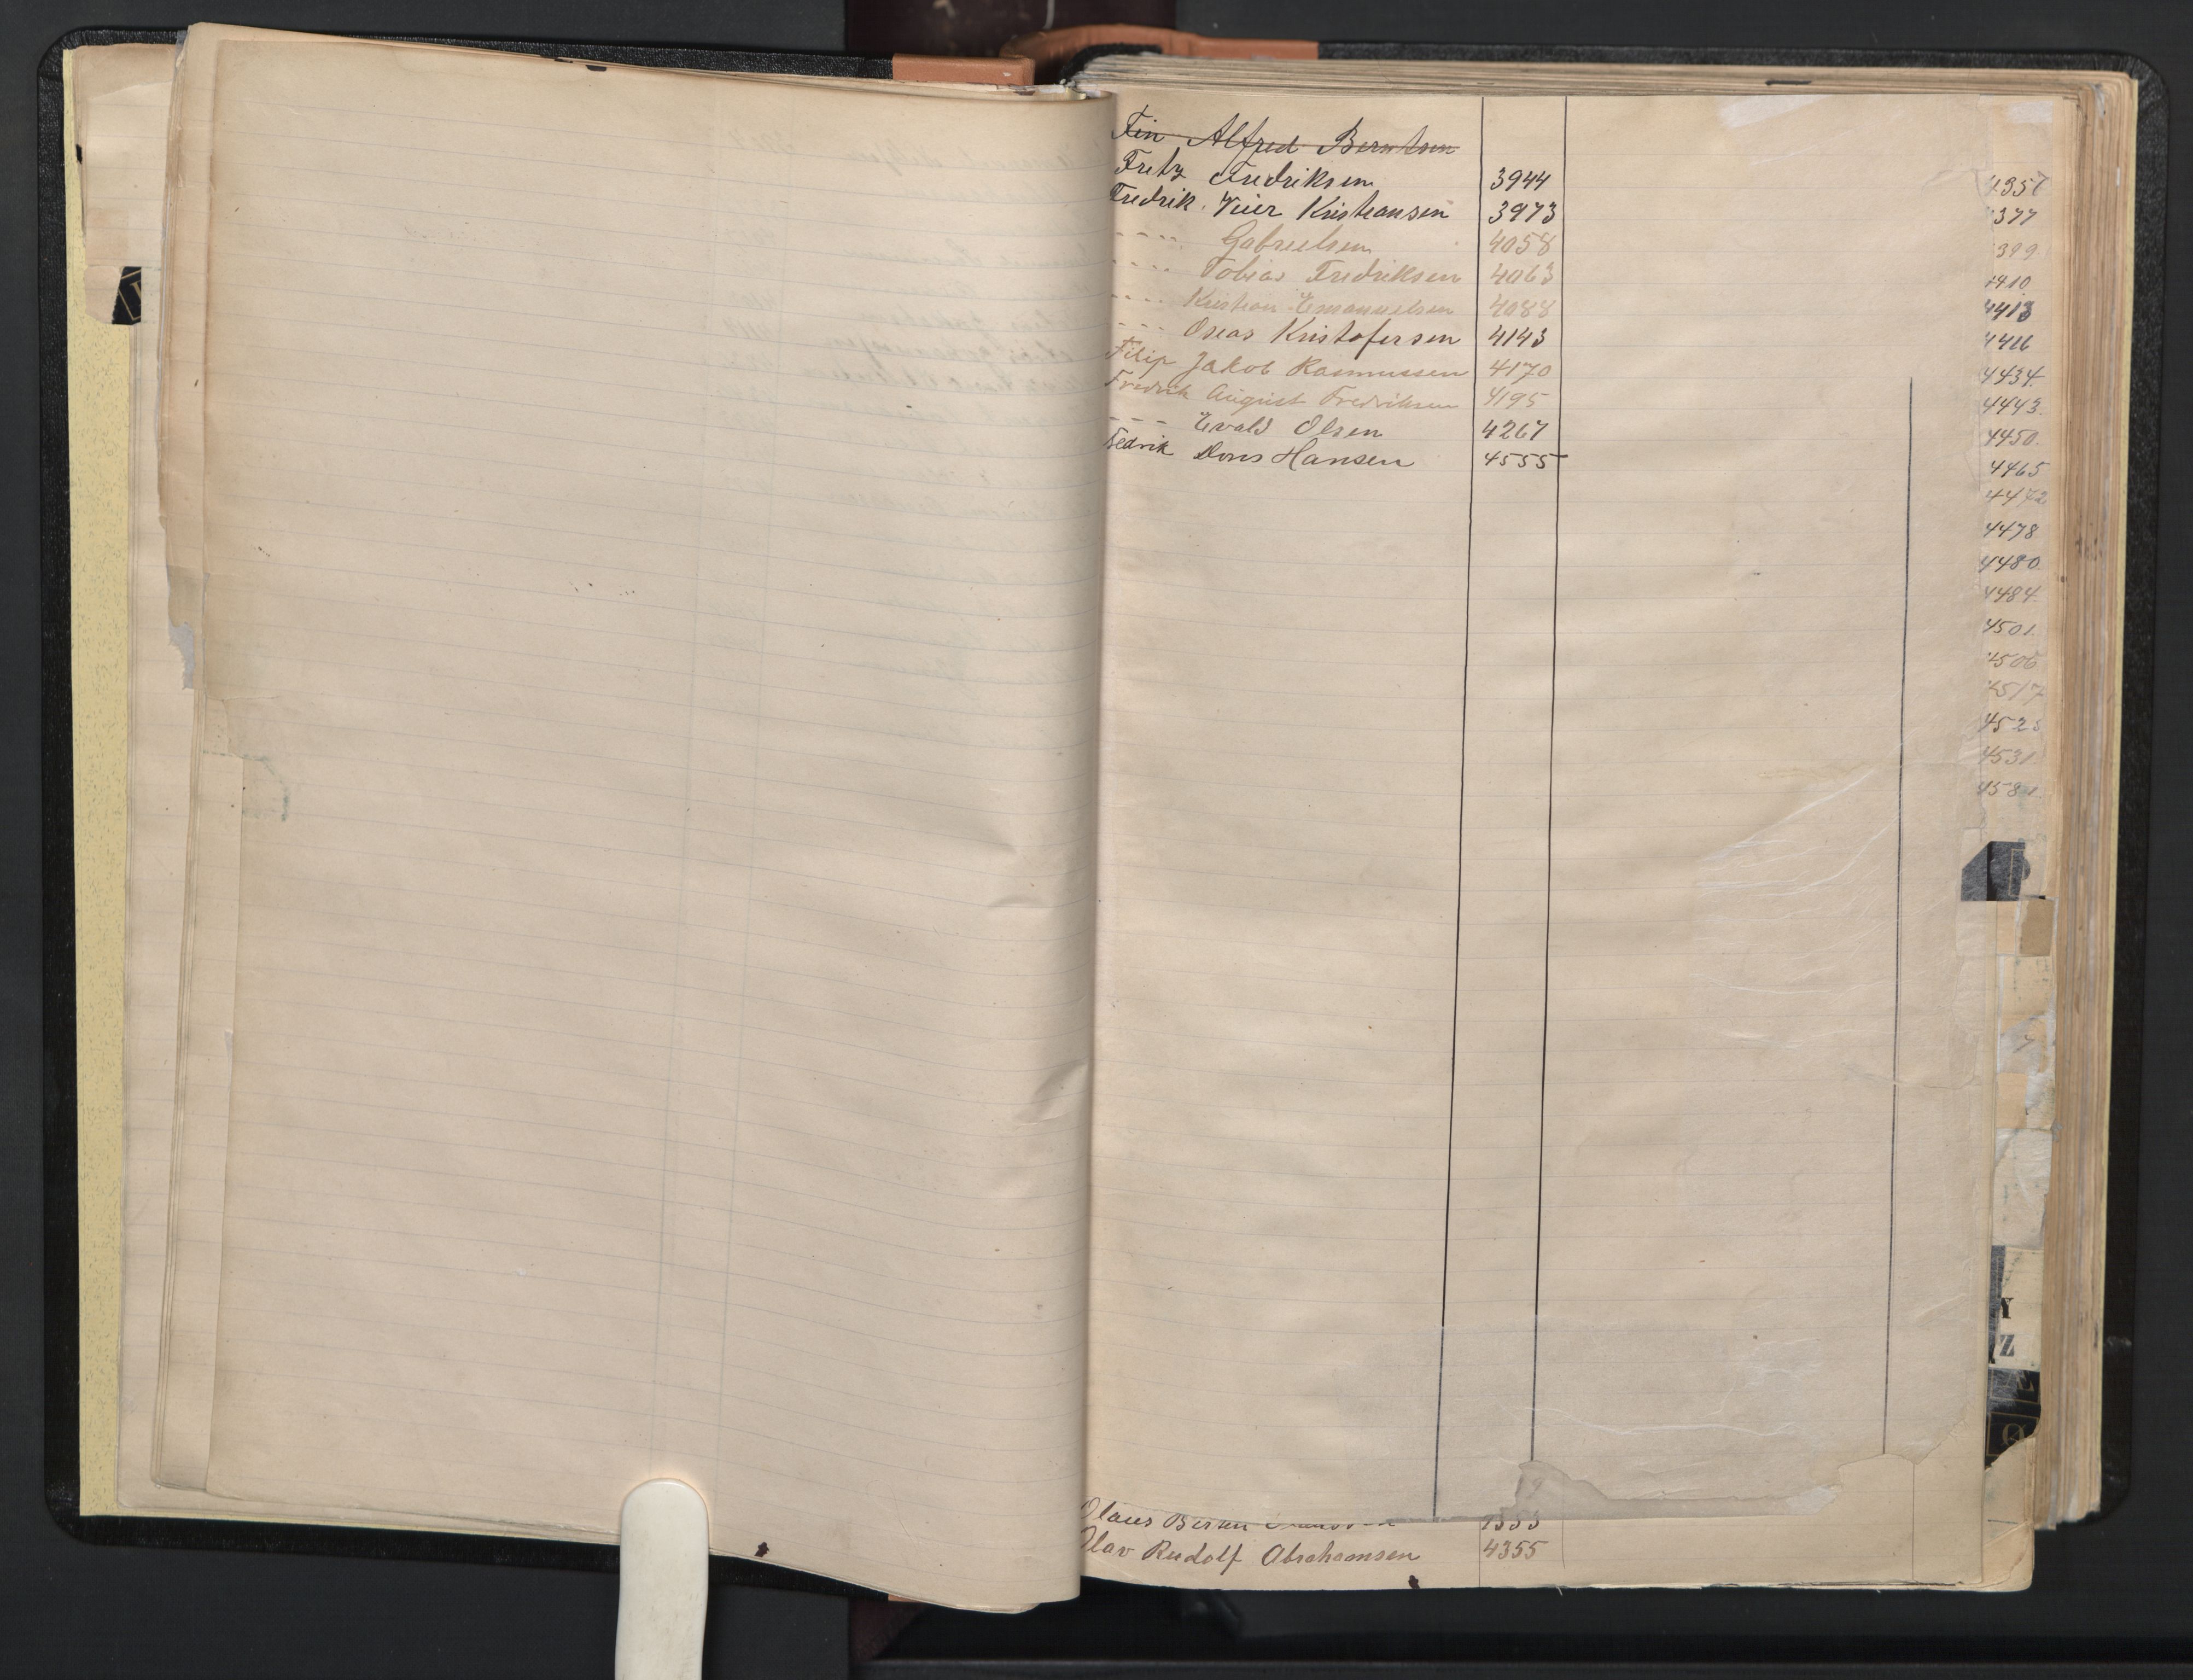 Fin Alfred Berntsen
Fritz Fredriksen 3944
Fredrik Veier Kristiansen 3973
---- Gabrielsen 4058
---- Tobias Fredriksen 4063
---- Kristian Emanuelsen 4088
--- Oseas Kristofersen 4143
Filip Jakob Rasmussen 4170
Fredrik August Fredriksen 4195
--- Evald Olsen 4267
Fedrik Doris Hansen 4555
Olaus Bernt
Olav Rudolf Abrahamsen 4355
4357
377
399
4410
4413
4416
4434
4443
4450
4465
4472
4478
4480
4484
4501
4506
4517
4528
4531
4581
Y
Z
Ø